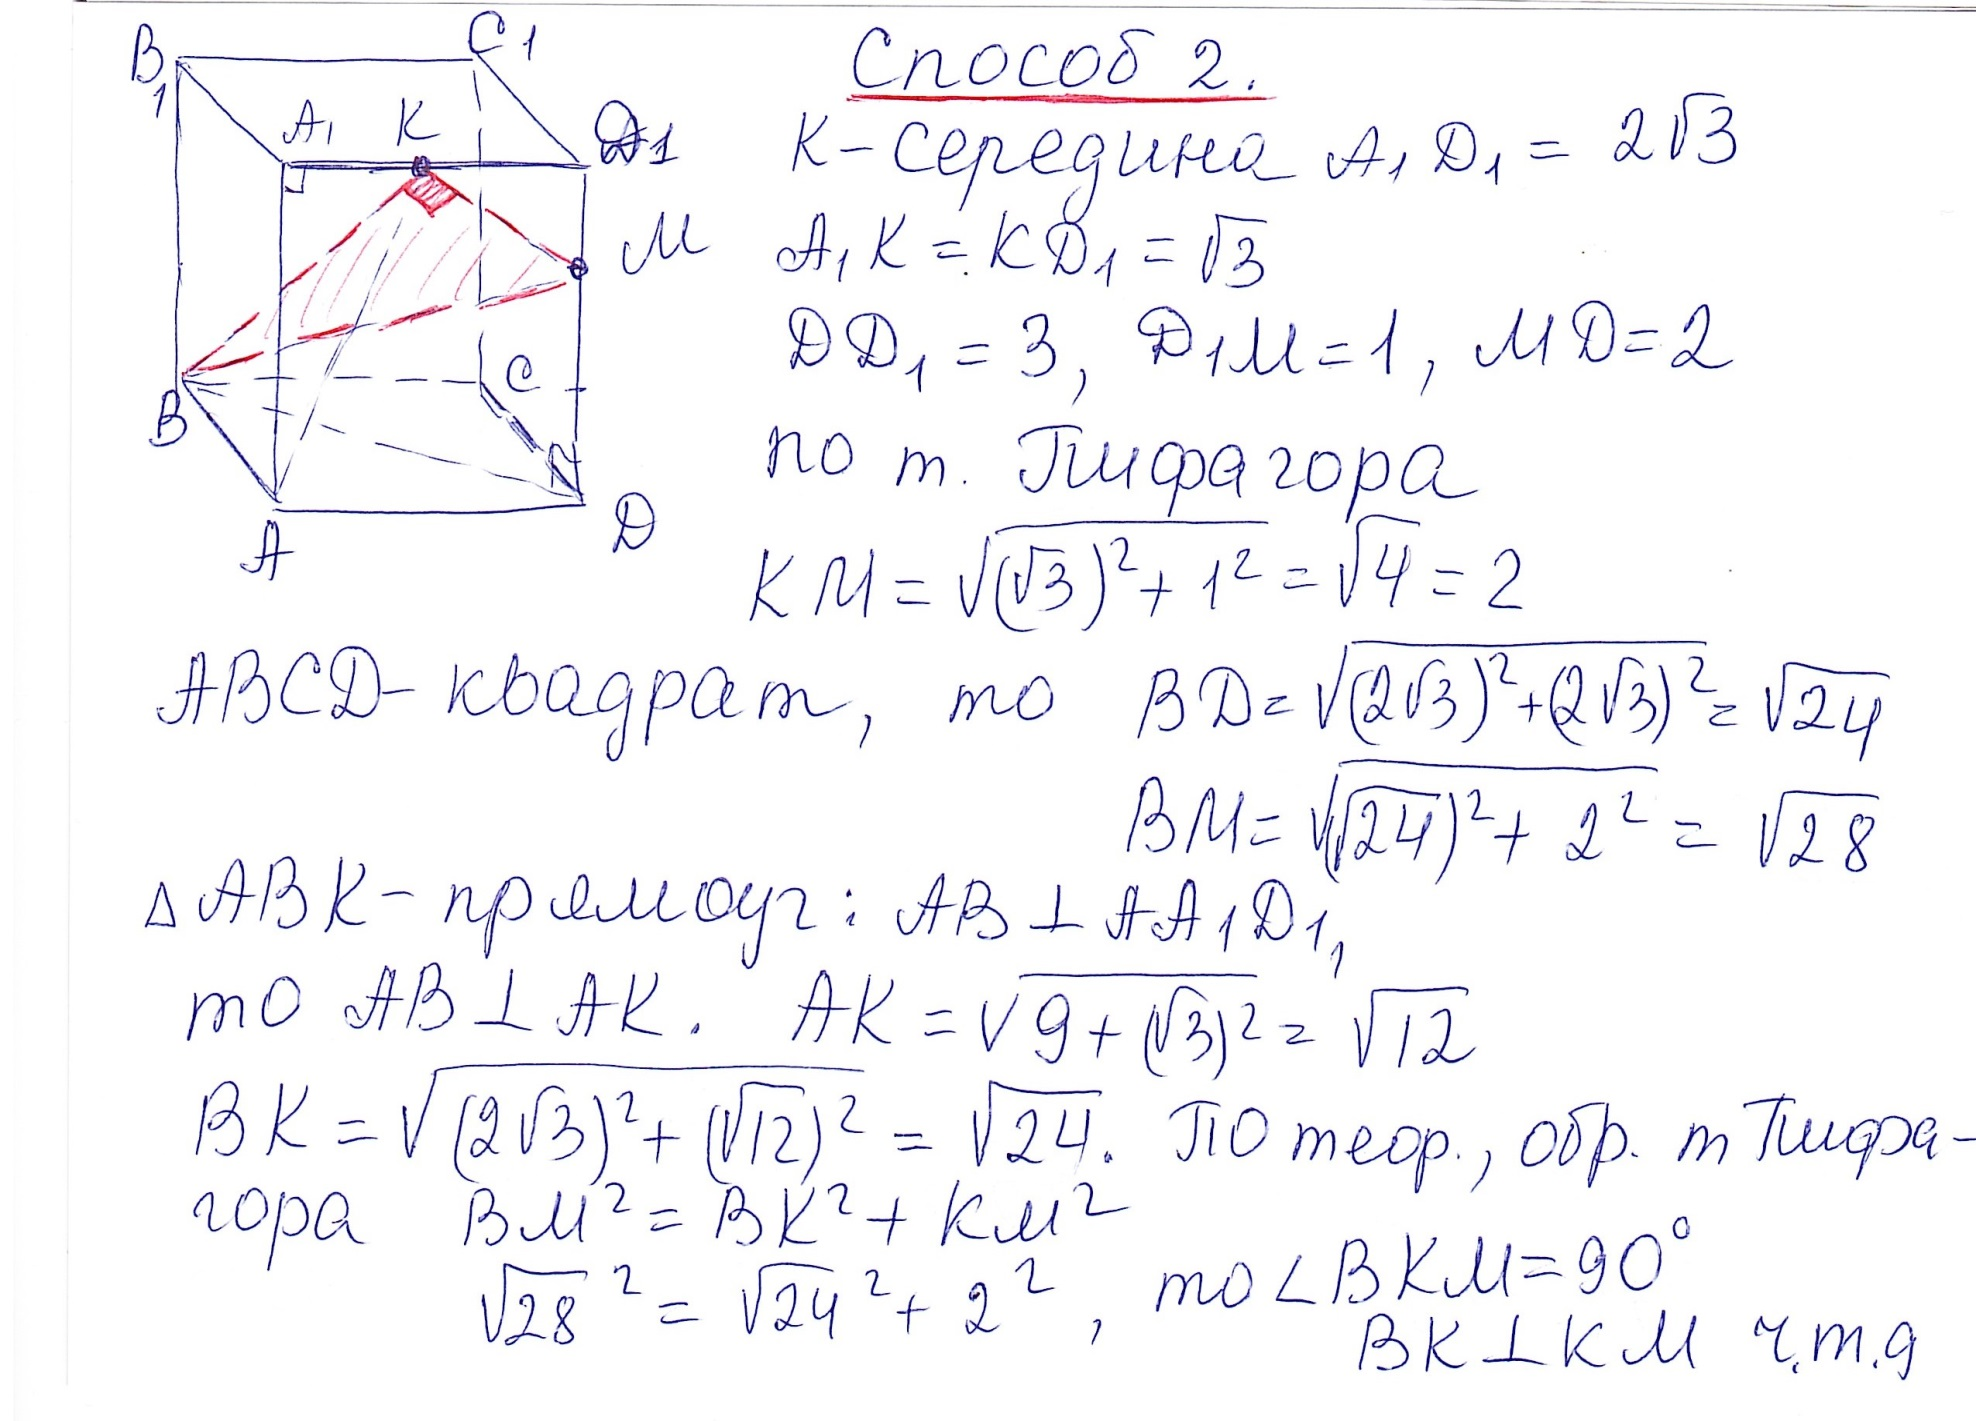 Способ 2.
B1
C1
A1
K
D1
M
B
C
A
D
K - середина A1D1 = 2√3
A1K = KD1 = √3
DD1 = 3, D1M = 1, MD = 2
по т. Пифагора
KM = √((√3)² + 1²) = √4 = 2
ABCD - квадрат, то BD = √((2√3)² + (2√3)²) = √24
BM = √((√24)² + 2²) = √28
△ABK - прямоуг: AB ⊥ AA1D1,
то AB ⊥ AK. AK = √(9 + (√3)²) = √12
BK = √((2√3)² + (√12)²) = √24. По теор., обр. т Пифа-
гора BM² = BK² + KM²
√28² = √24² + 2², то ∠BKM = 90°
BK ⊥ KM ч.т.д